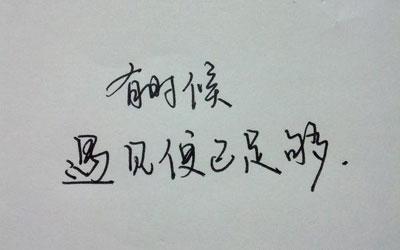 有时候
遇见便已足够.